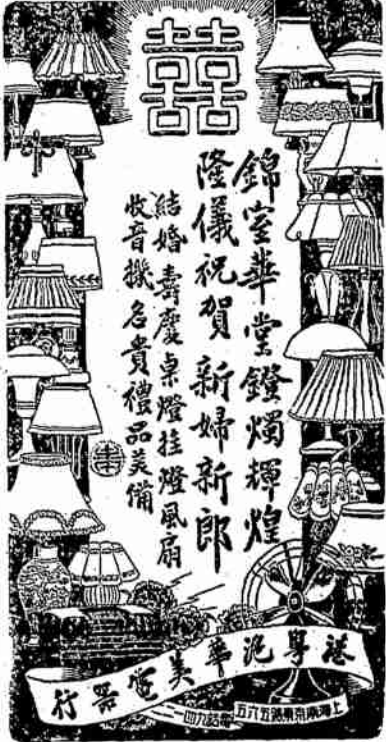 囍
錦室華堂鐙燭輝煌
隆儀祝賀新婦新郎
結婚壽慶桌燈挂燈風扇
收音機名貴禮品美備
港粵滬華美電器行
上海南京東路五六五 電話